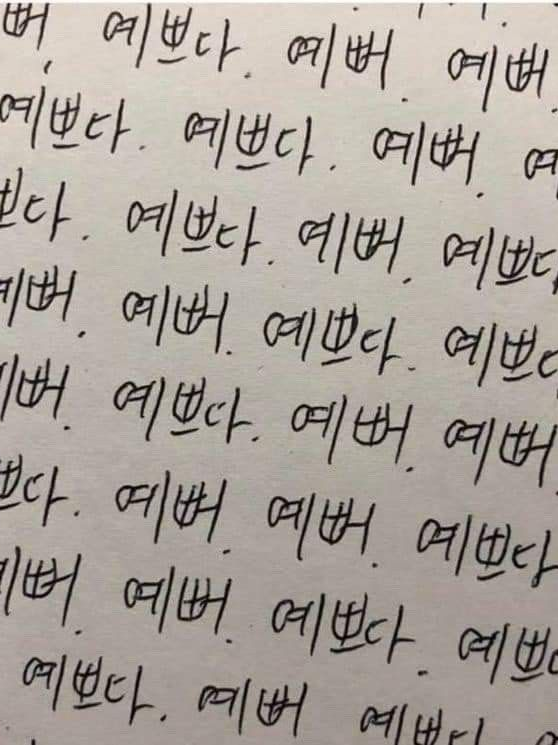 뻐. 예쁘다. 예뻐. 예뻐.
예쁘다. 예쁘다. 예뻐. 예
쁘다. 예쁘다. 예뻐. 예쁘다
예뻐. 예뻐. 예쁘다. 예쁘다
예뻐. 예쁘다. 예뻐. 예뻐
쁘다. 예뻐. 예뻐. 예쁘다
예뻐. 예뻐. 예쁘다. 예쁘다
예쁘다. 예뻐 예쁘다